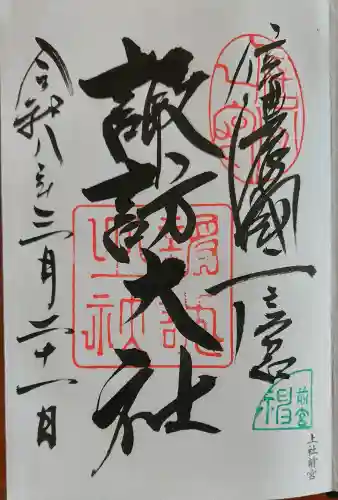 信濃國一之宮
諏訪大社
令和八年三月二十一日
前宮
上社前宮